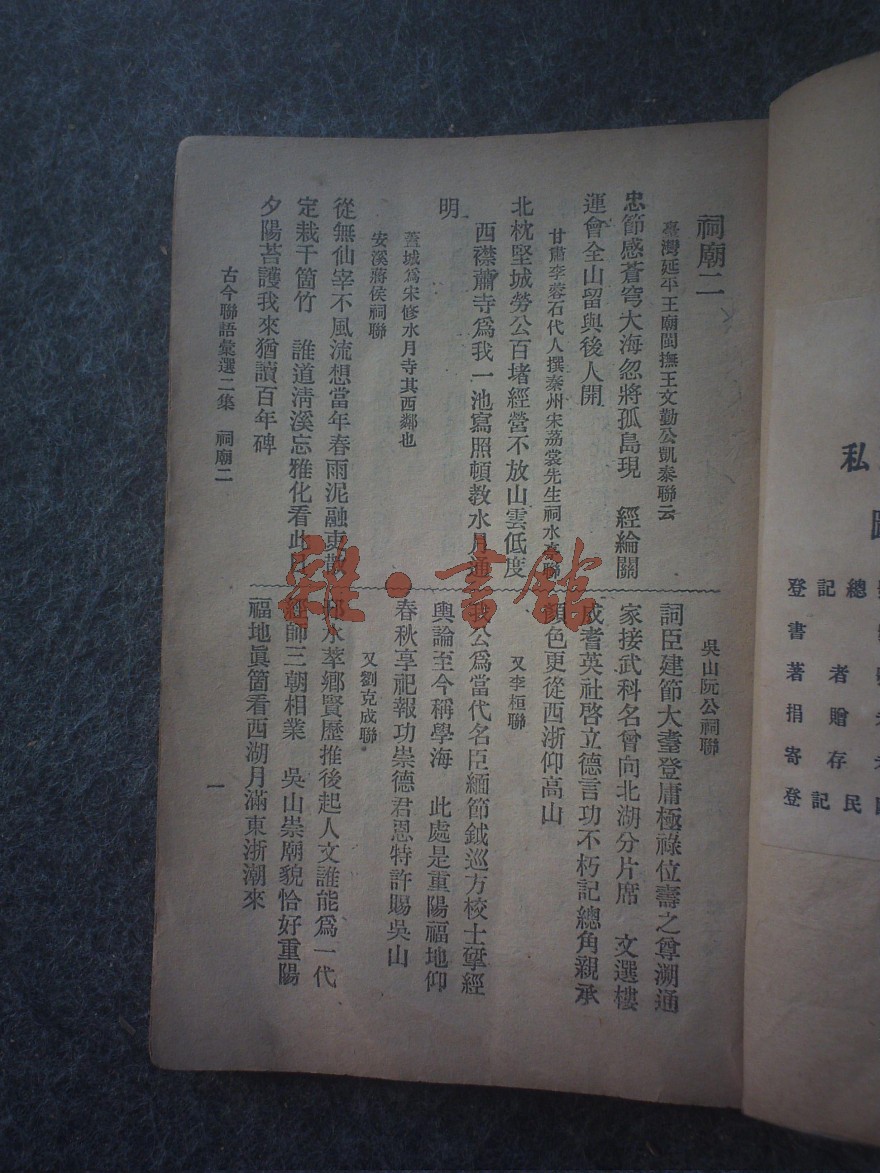 祠廟二
臺灣延平王廟閩撫王文勤公凱泰聯云
忠節感蒼穹大海忽將孤島現　經綸關
運會全山留與後人開
甘肅李蓉石代人撰秦州宋荔裳先生祠水亭聯
北枕堅城勞公百堵經營不放山雲低度
西襟蕭寺爲我一池寫照頓教水月通
明
蓋城爲宋修水月寺其西鄰也
安溪蔣侯祠聯
從無仙宰不風流想當年春雨泥融東散
定栽千箇竹　誰道清溪忘雅化看此月
夕陽苔護我來猶讀百年碑
吳山阮公祠聯
詞臣建節大耋登庸極祿位壽之尊溯通
家接武科名曾向北湖分片席　文選樓
成耆英社啓立德言功不朽記總角親承
顏色更從西浙仰高山
又李桓聯
我公爲當代名臣緬節鉞巡方校士揅經
輿論至今稱學海　此處是重陽福地仰
春秋享祀報功崇德君恩特許賜吳山
又劉克成聯
邗水萃鄉賢歷推後起人文誰能爲一代
經師三朝相業　吳山崇廟貌恰好重陽
福地眞箇看西湖月滿東浙潮來
古今聯語彙選二集　祠廟二
一
雜·書館
私
登記總
書
著者
捐贈
寄存
登記民